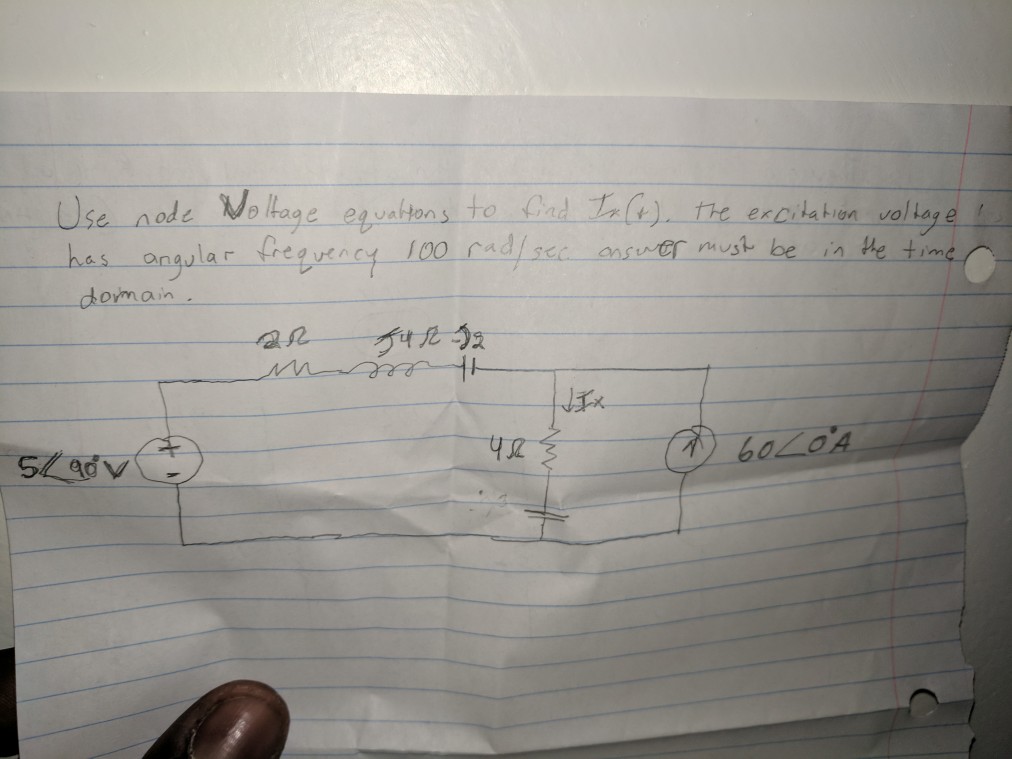 Use node Voltage equations to find Ix(t). The excitation voltage
has angular frequency 100 rad/sec answer must be in the time
domain.
2Ω J4Ω -J2
↓Ix
5∠90°V + - 4Ω ↑ 60∠0°A